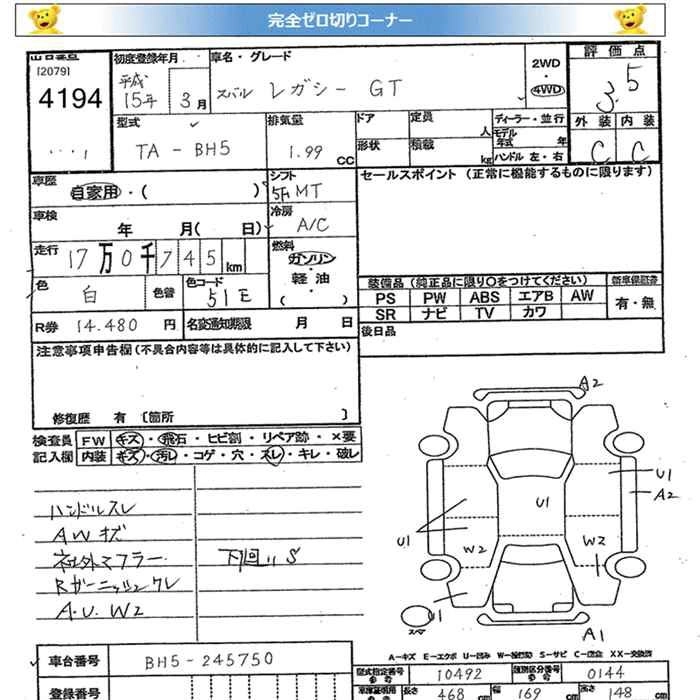 完全ゼロ切りコーナー
[2079]
4194
初度登録年月
平成
15年 3月
車名・グレード
スバル レガシー GT
2WD
・
4WD
評価点
3.5
型式
TA - BH5
排気量
1.99 CC
ドア
定員
人
ディーラー・並行
モデル
年式 年
形状
積載
kg
ハンドル 左・右
外装 内装
C C
車歴
自家用・( )
シフト
5F MT
セールスポイント (正常に機能するものに限ります)
車検
年 月( 日)
冷房
A/C
走行
17万0千745km
燃料
ガソリン
・
軽油
( )
色
白
色替
色コード
51E
装備品 (純正品に限り〇をつけてください)
新車保証書
PS PW ABS エアB AW
SR ナビ TV カワ
有・無
R券 14.480 円
名変通知期限 月 日
後日品
注意事項申告欄(不具合内容等は具体的に記入して下さい)
修復歴 有 [箇所 ]
検査員
記入欄
FW キズ・飛石・ヒビ割・リペア跡・×要
内装 キズ・汚レ・コゲ・穴・スレ・キレ・破レ
ハンドルスレ
AWキズ
社外マフラー
Rガーニッシュクレ
A.U.W2
下回リS
A2
U1
A2
U1
U1
W2
W2
U1
スペア
A1
A-キズ E-エクボ U-凹み W-補修跡 S-サビ C-腐食 XX-交換済
車台番号
BH5-245750
型式指定番号
参考
10492
類別区分番号
参考
0144
登録番号
長さ 468 cm 幅 169 cm 高さ 148 cm